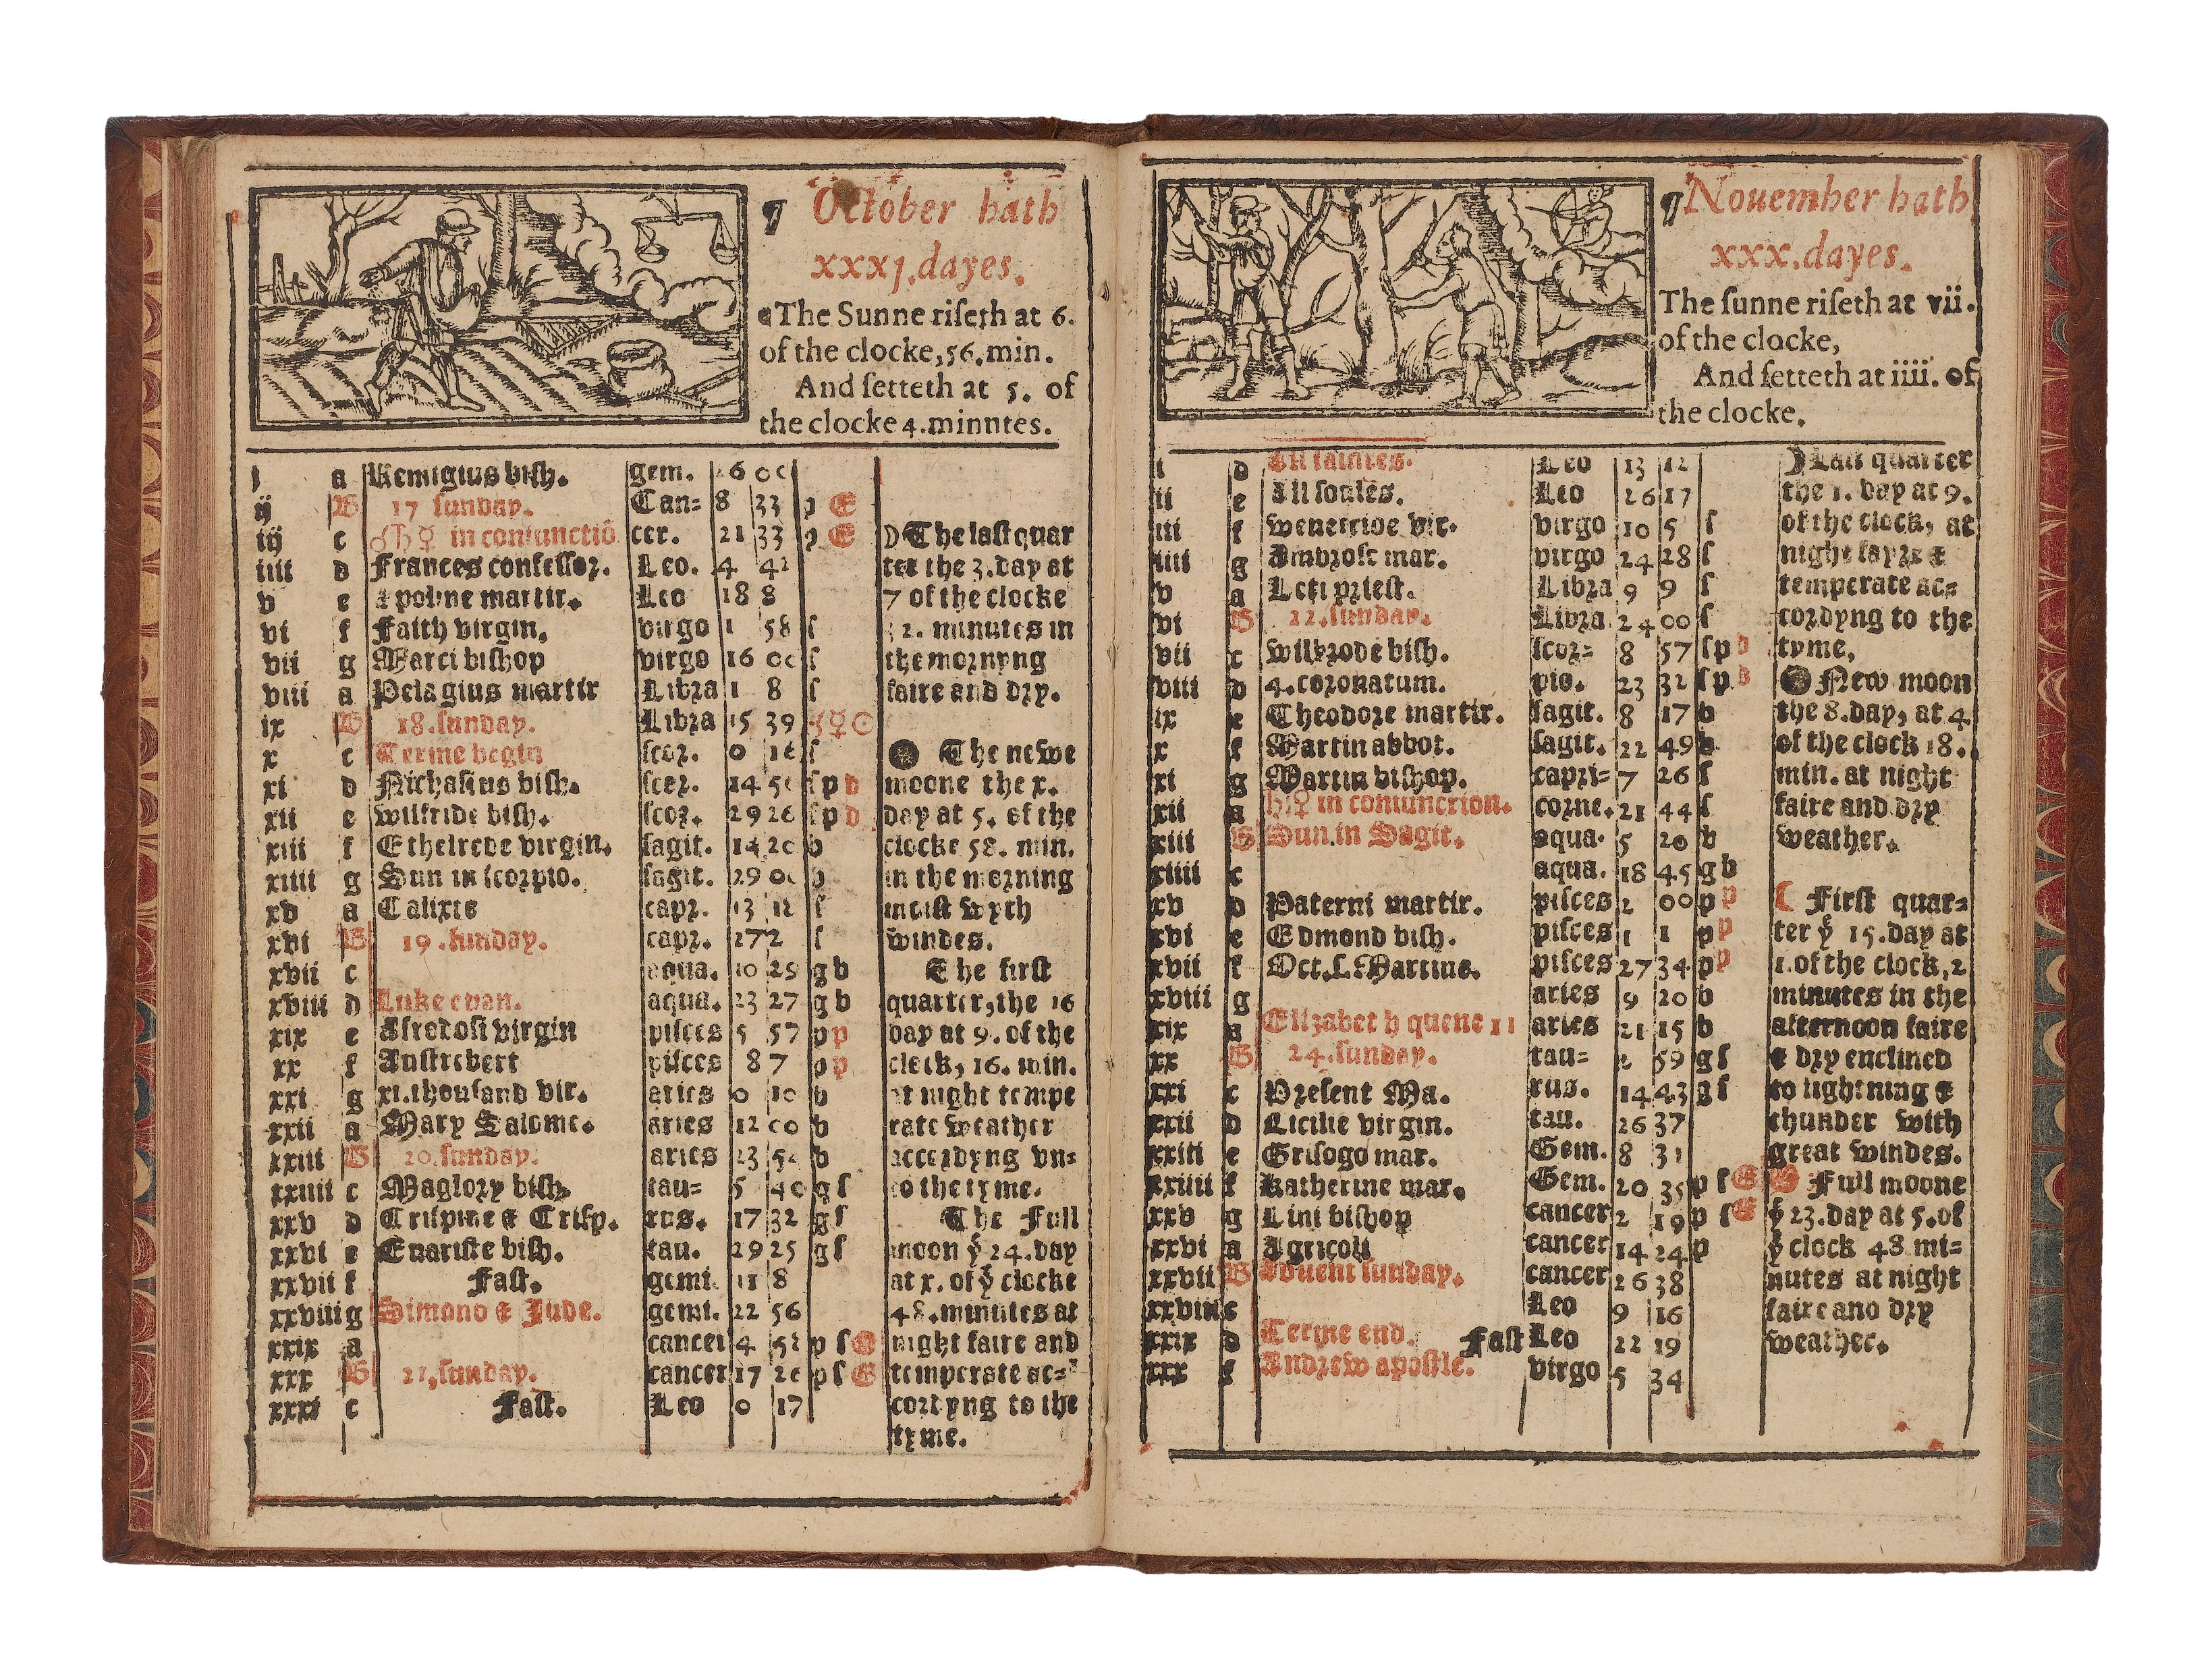 ¶ October hath
xxxj.dayes.
The Sunne riſeth at 6.
of the clocke,56.min.
And ſetteth at 5. of
the clocke 4.minntes.
j a Remigius biſh. gem. 26 00
ij B 17 ſunday. Can= 8 33 p E
iij c ♂♄☿ in coniunctiō cer. 21 33 p E ☽ The laſt quar
iiii d Frances confeſſoz. Leo. 4 42 ter the 3.day at
v e Apoline martir. Leo 18 8 7 of the clocke
vi f Faith virgin, virgo 1 58 ſ 32. minutes in
vii g Marci biſhop virgo 16 00 ſ the mornyng
viii a Pelagius martir Libra 1 8 ſ faire and dry.
ix B 18.ſunday. Libra 15 39 ☿☉
x c Terme begin ſcor. 0 16 ſ The newe
xi d Nichaſius biſh. ſcor. 14 56 ſ p d moone the x.
xii e wilfride biſh. ſcor. 29 26 ſ p d day at 5. of the
xiii f Ethelrede virgin. ſagit. 14 20 b clocke 58. min.
xiiii g Sun in ſcorpio. ſagit. 29 00 b in the morning
xv a Calixte capr. 13 12 ſ moiſt wyth
xvi B 19.ſunday. capr. 27 2 ſ windes.
xvii c aqua. 10 29 g b The firſt
xviii d Luke evan. aqua. 23 27 g b quarter,the 16
xix e Alfredoſi virgin piſces 5 57 p p day at 9.of the
xx f Auſtrebert piſces 8 7 p p clock, 16. min.
xxi g xi.thouſand vir. aries 0 10 b at night tempe
xxii a Mary Salome. aries 12 00 b rate weather
xxiii B 20.ſunday. aries 23 52 b accordyng vn=
xxiiii c Maglory biſh. tau= 5 40 g ſ to the tyme.
xxv d Criſpine & Criſp. rus. 17 32 g ſ The Full
xxvi e Euariſte biſh. tau. 29 25 g ſ moon yͤ 24.day
xxvii f Faſt. gemi. 11 8 at x. of yͤ clocke
xxviii g Simono & Jude. gemi. 22 56 48.minutes at
xxix a cancer 4 52 p ſ E night faire and
xxx B 21,ſunday. cancer 17 26 p ſ E temperate ac=
xxxi c Faſt. Leo 0 17 cordyng to the
tyme.
¶ Nouember hath
xxx.dayes.
The ſunne riſeth at vii.
of the clocke,
And ſetteth at iiii. of
the clocke.
i d All ſaintes. Leo 13 12 ☽ Laſt quarter
ii e All ſoules. Leo 26 17 the 1. day at 9.
iii f Wenefride vir. virgo 10 5 ſ of the clock, at
iiii g Ambroſe mar. virgo 24 28 ſ night fayre &
v a Leti prieſt. Libra 9 9 ſ temperate ac=
vi B 22.ſunday. Libra 24 00 ſ cordyng to the
vii c wilbrode biſh. ſcor= 8 57 ſ p d tyme,
viii d 4.coronatum. pio. 23 32 ſ p d New moon
ix e Theodore martir. ſagit. 8 17 b the 8.day, at 4
x f Martin abbot. ſagit. 22 49 b of the clock 18.
xi g Martin biſhop. capri= 7 26 ſ min. at night
xii a ♄♀ in coniunction. corne. 21 44 ſ faire and dry
xiii B Sun.in Sagit. aqua. 5 20 b weather.
xiiii c aqua. 18 45 g b
xv d Paterni martir. piſces 2 00 p p ☾ Firſt quar=
xvi e Edmond biſh. piſces 1 1 p p ter yͤ 15.day at
xvii f Oct.ſ.Martine. piſces 27 34 p p 1.of the clock,2
xviii g aries 9 20 b minutes in the
xix a Elizabeth quene 11 aries 21 15 b afternoon faire
xx B 24.ſunday. tau= 2 59 g ſ & dry enclined
xxi c Preſent Ma. rus. 14 43 g ſ to lightning &
xxii d Cicilie virgin. tau. 26 37 thunder with
xxiii e Griſogo mar. Gem. 8 31 great windes.
xxiiii f Katherine mar. Gem. 20 35 p ſ E Full moone
xxv g Lini biſhop cancer 2 19 p ſ E yͤ 23.day at 5.of
xxvi a Agricoli cancer 14 24 p yͤ clock 48 mi=
xxvii B Aduent ſunday. cancer 26 38 nutes at night
xxviii c Leo 9 16 faire and dry
xxix d Terme end. Faſt Leo 22 19 weather.
xxx e Andrew apoſtle. virgo 5 34